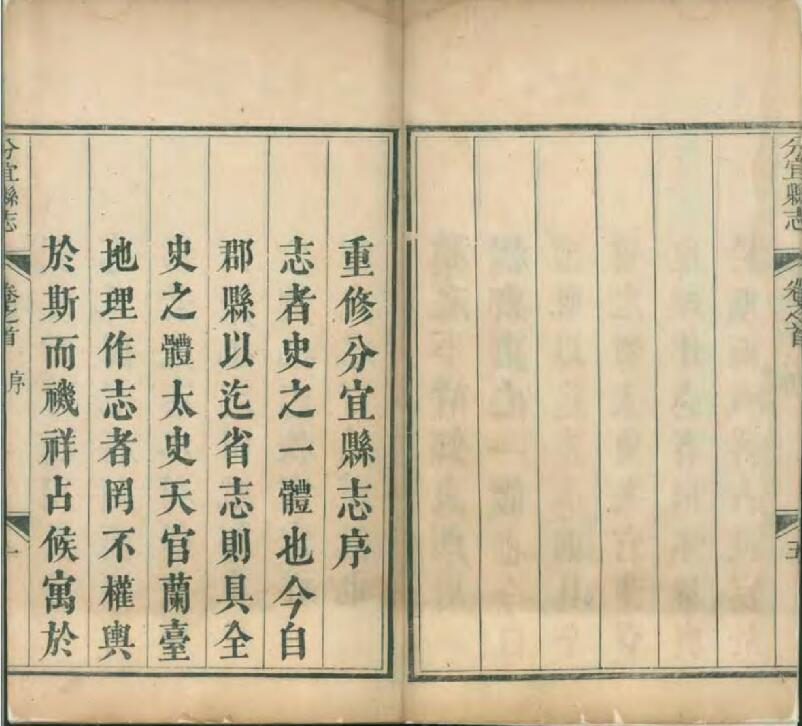 分宜縣志
卷之首
五
重修分宜縣志序
志者史之一體也今自
郡縣以迄省志則具全
史之體太史天官蘭臺
地理作志者罔不權輿
於斯而禨祥占候寓於
分宜縣志
卷之首
序
一